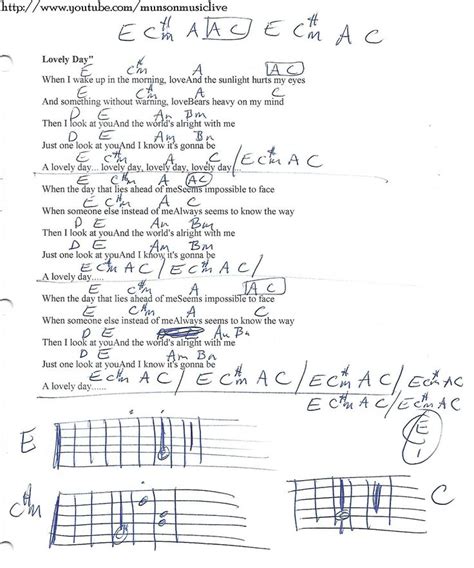 http://www.youtube.com/munsonmusiclive
E C#m A A C E C#m A C
Lovely Day"
E C#m A A C
When I wake up in the morning, loveAnd the sunlight hurts my eyes
E C#m A C
And something without warning, loveBears heavy on my mind
D E Am Bm
Then I look at youAnd the world's alright with me
D E Am Bm
Just one look at youAnd I know it's gonna be
E C#m A C / E C#m A C
A lovely day... lovely day, lovely day, lovely day....
E C#m A A C
When the day that lies ahead of meSeems impossible to face
E C#m A C
When someone else instead of meAlways seems to know the way
D E Am Bm
Then I look at youAnd the world's alright with me
D E Am Bm
Just one look at youAnd I know it's gonna be
E C#m A C / E C#m A C /
A lovely day.....
E C#m A A C
When the day that lies ahead of meSeems impossible to face
E C#m A C
When someone else instead of meAlways seems to know the way
D E Am Bm
Then I look at youAnd the world's alright with me
D E Am Bm
Just one look at youAnd I know it's gonna be
E C#m A C / E C#m A C / E C#m A C / E C#m A C
A lovely day......
E C#m A C / E C#m A C
E
E
C#m
C